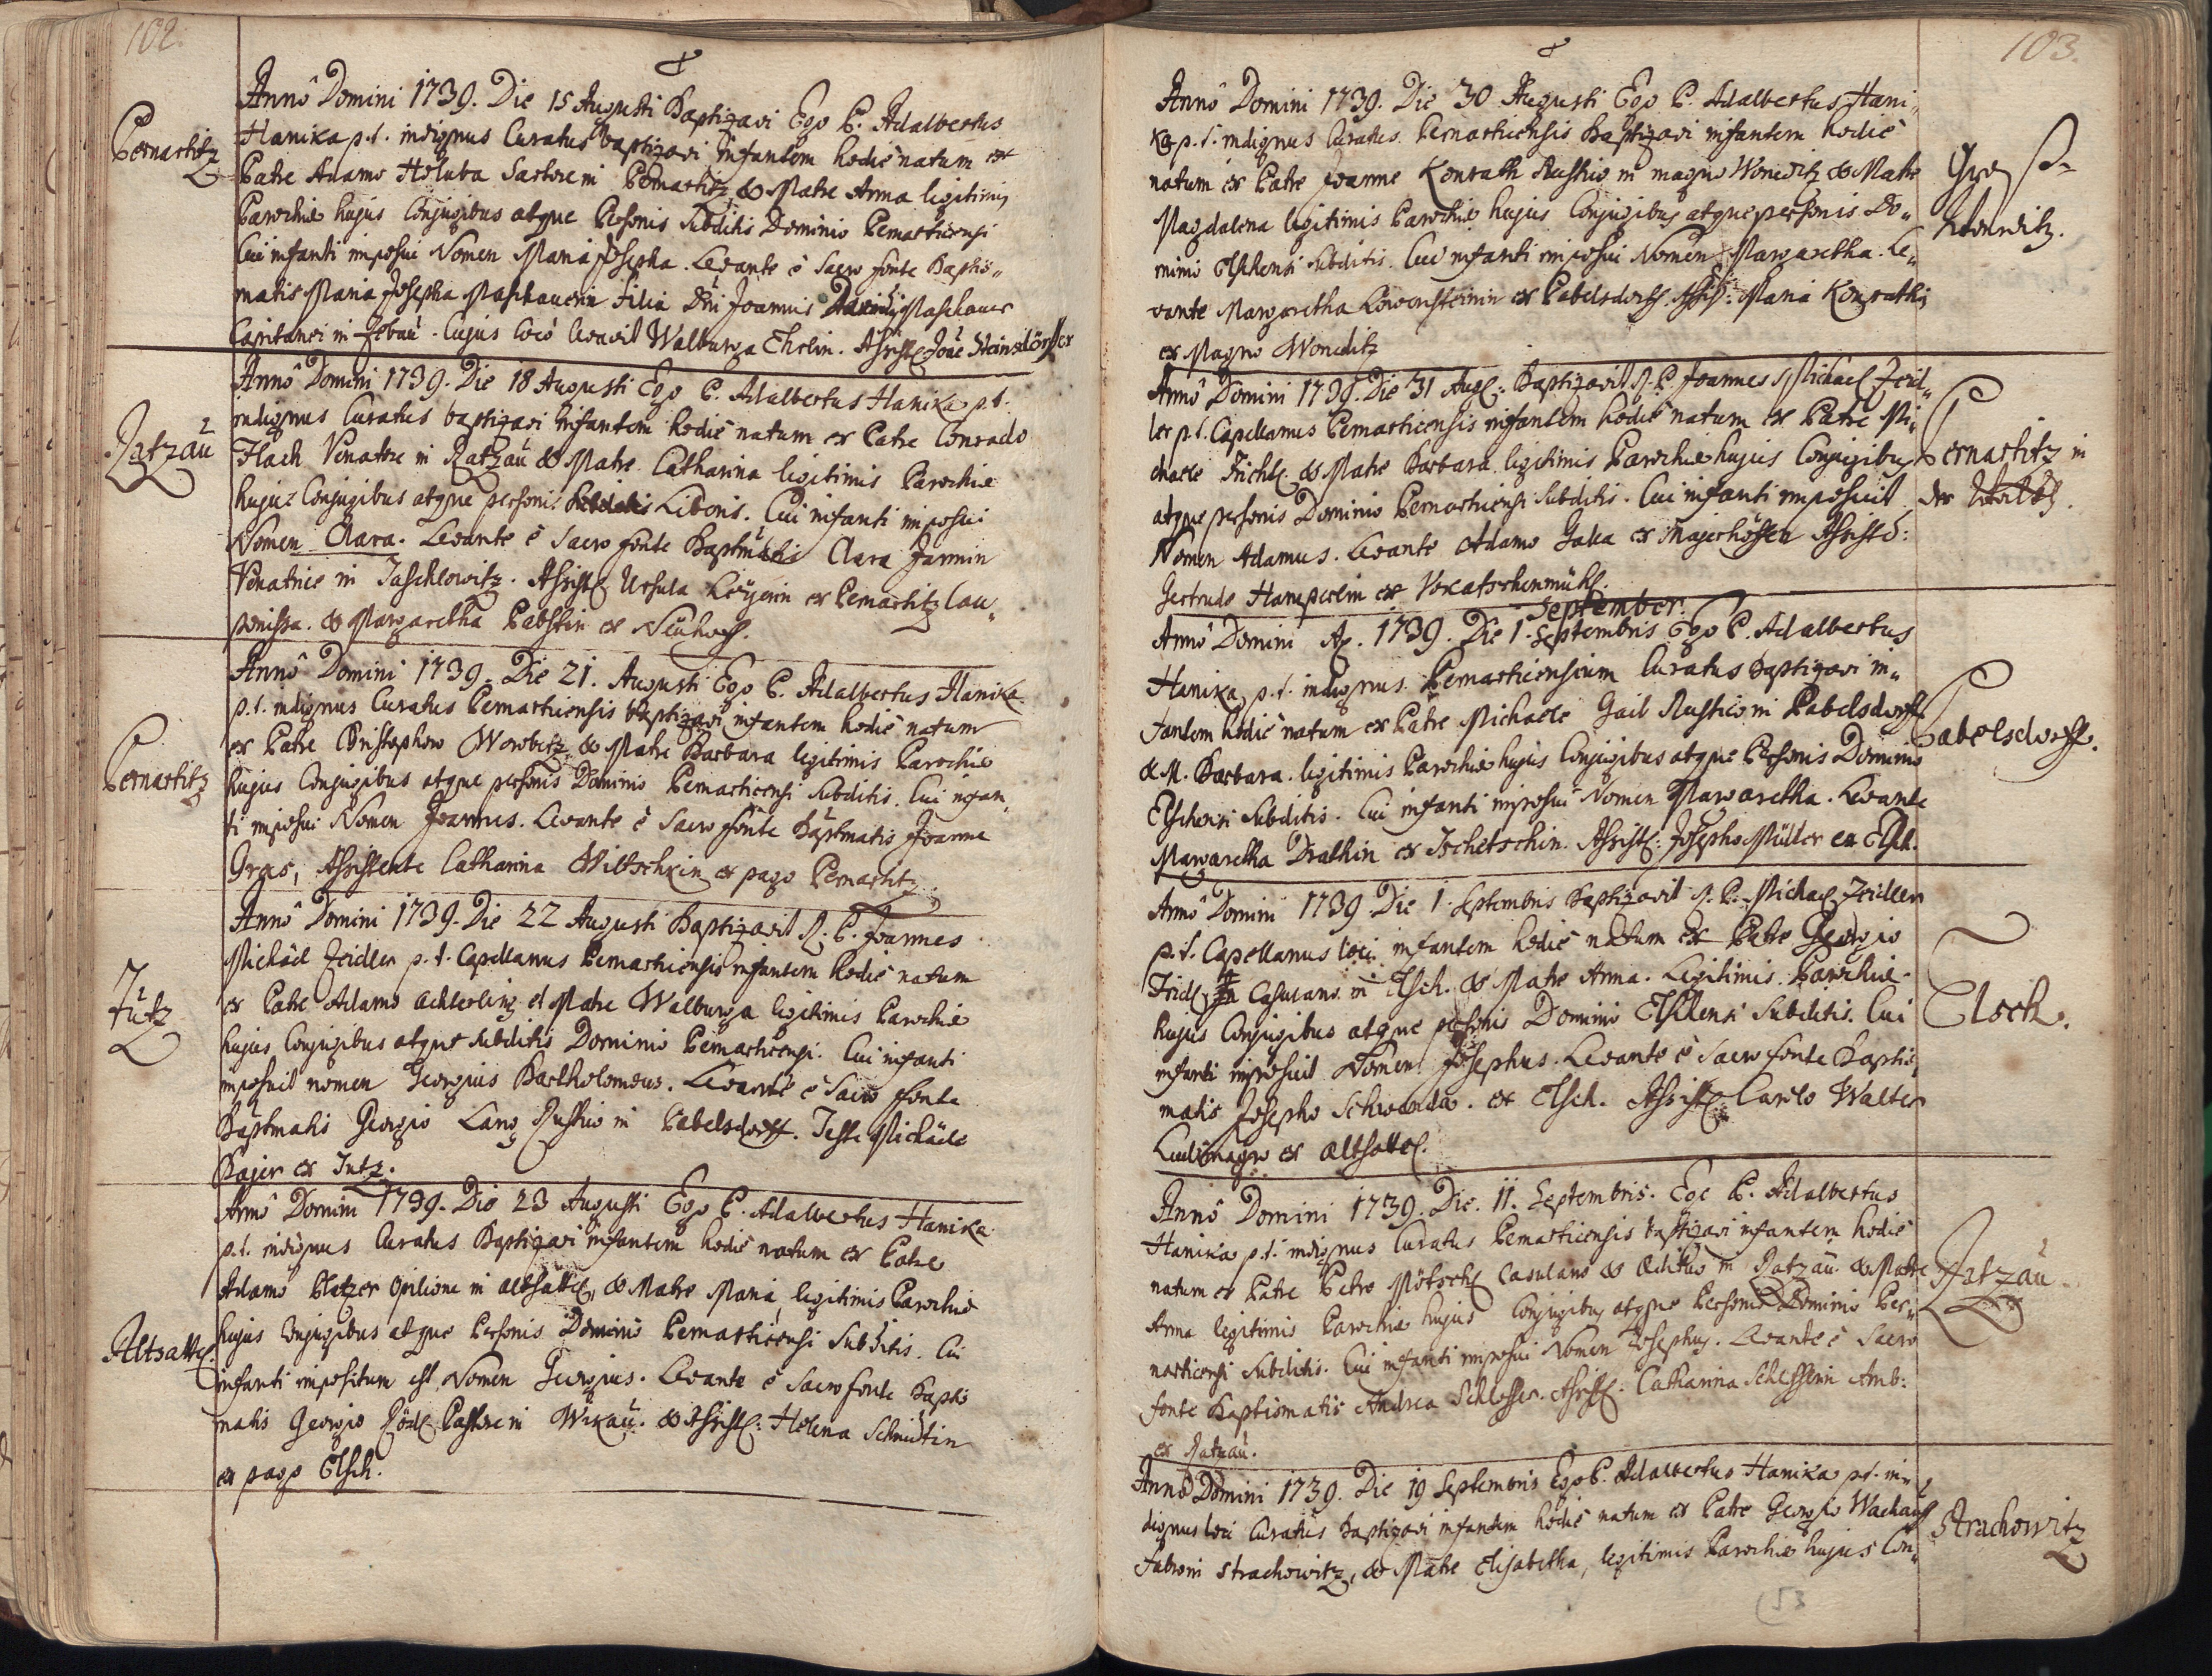 102.
Pernartitz
Annô Domini 1739. Die 15 Augusti Baptizavi Ego P. Adalbertus
Hanika p.t. indignus Curatus baptizavi Infantem hodiè natum ex
Patre Adamo Holuba Sartore in Pernartitz & Matre Anna legitimis
Parochiæ hujus Conjugibus atque Personis Subditis Dominio Pernarticensi
Cui infanti imposui Nomen Maria Josepha. Levante è Sacro fonte Baptis„
matis Maria Josepha Maschauerin filia Dni Joannis Maschauer
Capitanei in Zebau. Cujus locô levavit Walburga Ehrlin. Assist: Joãe Steinsdörffer
Ratzau
Annô Domini 1739. Die 18 Augusti Ego P. Adalbertus Hanika p.t.
indignus Curatus baptizavi Infantem hodiè natum ex Patre Conrado
Flach Venatore in Ratzau & Matre Catharina legitimis Parochiæ
hujus Conjugibus atque personis Liberis. Cui infanti imposui
Nomen Clara. Levante è Sacro fonte Baptismatis Clara Jarmin
Venatrice in Taschlowitz. Assist: Ursula Leÿerin ex Pernartitz Cau„
ponissa. & Margaretha Pabstin ex Neuhoff.
Pernartitz
Annô Domini 1739. Die 21. Augusti Ego P. Adalbertus Hanika
p.t. indignus Curatus Pernarticensis baptizavi infantem hodiè natum
ex Patre Christophoro Worbetz & Matre Barbara legitimis Parochiæ
hujus Conjugibus atque personis Dominio Pernarticensi Subditis. Cui infan„
ti imposui Nomen Joannes. Levante è Sacro fonte Baptismatis Joanne
Gras, Assistente Catharina Wiltschkin ex pago Pernartitz
Jutz
Annô Domini 1739. Die 22 Augusti Baptizavit R. P. Joannes
Michäel Zeidler p.t. Capellanus Pernarticensis infantem hodiè natum
ex Patre Adamo Achterling et Matre Walburga legitimis Parochiæ
hujus Conjugibus atque Subditis Dominio Pernarticensi. Cui infanti
imposuit nomen Georgius Bartholomæus. Levante è Sacro fonte
Baptismatis Georgio Lang Rustico in Pabelsdorff. Teste Michäele
Bajer ex Jutz.
Altsattel
Annô Domini 1739. Die 23 Augusti Ego P. Adalbertus Hanika
p.t. indignus Curatus Baptizavi infantem hodiè natum ex Patre
Adamo Platzer Opilione in Altsattel, & Matre Maria, legitimis Parochiæ
hujus Conjugibus atque Personis Dominio Pernarticensi Subditis. Cui
infanti impositum est Nomen Georgius. Levante è Sacro fonte Baptis
matis Georgio Rödl Pastore in Wikau. & Assist: Helena Schmidtin
ex pago Elsch.
103.
Annô Domini 1739. Die 30 Augusti Ego P. Adalbertus Hani„
ka p.t. indignus Curatus Pernarticensis Baptizavi infantem hodiè
natum ex Patre Joanne Konrath Rustico in magno Woneditz & Matre
Magdalena legitimis Parochiæ hujus Conjugibus atque personis Do„
minio Elschensi Subditis. Cui infanti imposui Nomen Margaretha. Le„
vante Margaretha Löwensteinin ex Pabelsdorff. Assist: Maria Konrathin
ex Magno Woneditz
Groß
Annô Domini 1739. Die 31 Aug: Baptizavit R. P. Joannes Michael Zeid„
ler p.t. Capellanus Pernarticensis infantem hodiè natum ex Patre Mi„
chaele Fichtl & Matre Barbara legitimis Parochiæ hujus Conjugibus
atque personis Dominio Pernarticensi Subditis. Cui infanti imposuit
Nomen Adamus. Levante Adamo Galla ex Majerhöffen Assist:
Gertrude Hamperlin ex Wokatschenmühl.
Pernartitz in
der
September.
Anno Domini 1739. Die 1. Septembris Ego P. Adalbertus
Hanika p.t. indignus Pernarticensium Curatus baptizavi in„
fantem hodiè natum ex Patre Michaele Gail Rustico in Pabelsdorff
& M. Barbara legitimis Parochiæ hujus Conjugibus atque Personis Dominio
Elschensi Subditis. Cui infanti imposui Nomen Margaretha. Levante
Margaretha Drathin ex Tschetschin. Assist: Josepho Müller ex Elsch.
Pabelsdorff.
Annô Domini 1739 Die 1. Septembris Baptizavit R. P. Michael Zeidler
p.t. Capellanus loci infantem hodiè natum ex Patre Georgio
Fridl Casulano in Elsch. & Matre Anna. Legitimis Parochiæ
hujus Conjugibus atque personis Dominio Elschensi Subditis. Cui
infanti imposuit Nomen Josephus. Levante è Sacro fonte Baptis„
matis Josepho Schwanda. ex Elsch. Assist: Carolo Walter
Ludimagro ex Altsattel.
Elsch.
Annô Domini 1739. Die. 11. Septembris. Ego P. Adalbertus
Hanika p.t. indignus Curatus Pernarticensis baptizavi infantem hodiè
natum ex Patre Petro Mötschl Casulano & Ædituo in Ratzau & Matre
Anna legitimis Parochiæ hujus Conjugibus atque Personis Dominio Per„
narticensi Subditis. Cui infanti imposui Nomen Josephus. Levante è Sacro
fonte Baptismatis Andrea Schlosser. Assist: Catharina Schlosserin Amb:
ex Ratzau.
Ratzau
Annô Domini 1739. Die 19 Septembris Ego P. Adalbertus Hanika p.t. in„
dignus loci Curatus Baptizavi infantem hodiè natum ex Patre Georgio
Fabro in Strachowitz, & Matre Elisabetha, legitimis Parochiæ hujus Con„
Strachowitz
53